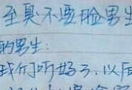 至臭不要脸男生
的男生：
我们听好了，以后